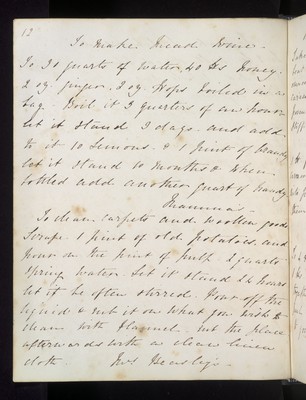 12
To make Mead Wine -
To 20 quarts of water, 40 lbs Honey.
2 oz. ginger, 2 oz. Hops boiled in a
bag. Boil it 3 quarters of an hour
let it stand 3 days. and add
to it 10 Lemons. & 1 pint of brandy
let it stand 10 months & when
bottled add another quart of brandy
Mamma -
To clean carpets and woollen goods
Scrape 1 pint of old potatoes and
pour on the pint of pulp 2 quarts
Spring water let it stand 24 hours
let it be often stirred. Pour off the
liquid & rub it on what you wish to
clean with flannel. rub the place
afterwards with a clean linen
cloth. Mrs